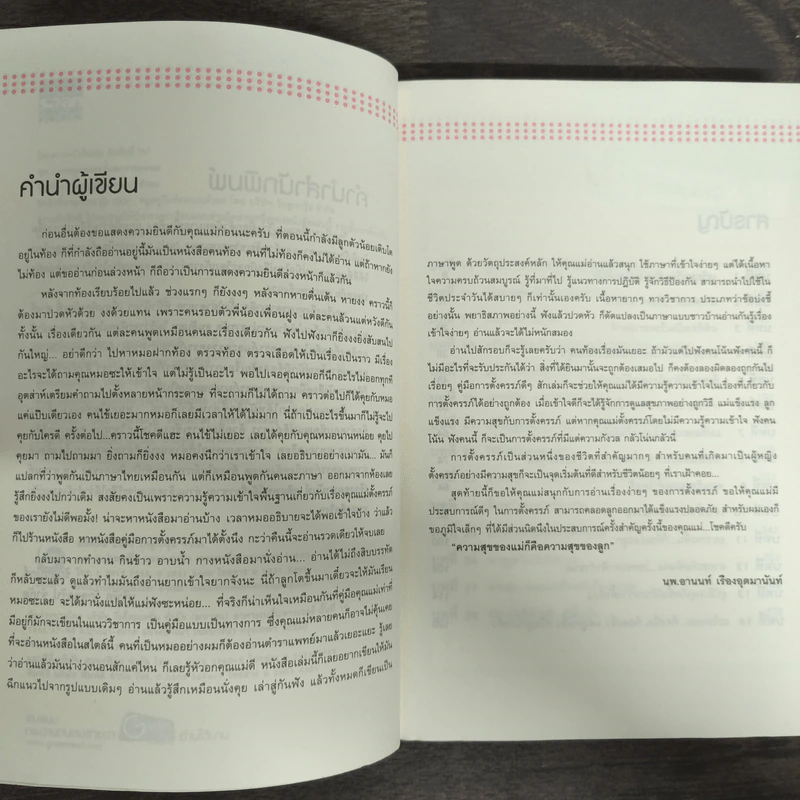 คำนำผู้เขียน
ก่อนอื่นต้องขอแสดงความยินดีกับคุณแม่ก่อนนะครับ ที่ตอนนี้กำลังมีลูกตัวน้อยเติบโต
อยู่ในท้อง ก็ที่กำลังถืออ่านอยู่นี้มันเป็นหนังสือคนท้อง คนที่ไม่ท้องก็คงไม่ได้อ่าน แต่ถ้าหากยัง
ไม่ท้อง แต่ขออ่านก่อนล่วงหน้า ก็ถือว่าเป็นการแสดงความยินดีล่วงหน้าก็แล้วกัน
หลังจากท้องเรียบร้อยไปแล้ว ช่วงแรกๆ ก็ยังงงๆ หลังจากหายตื่นเต้น หายงง คราวนี้ก็
ต้องมาปวดหัวด้วย งงด้วยแทน เพราะคนรอบตัวพี่น้องเพื่อนฝูง แต่ละคนล้วนแต่หวังดีกัน
ทั้งนั้น เรื่องเดียวกัน แต่ละคนพูดเหมือนคนละเรื่องเดียวกัน ฟังไปฟังมาก็ยิ่งงงยิ่งสับสนไป
กันใหญ่... อย่าดีกว่า ไปหาหมอฝากท้อง ตรวจท้อง ตรวจเลือดให้เป็นเรื่องเป็นราว มีเรื่อง
อะไรจะได้ถามคุณหมอซะให้เข้าใจ แต่ไม่รู้เป็นอะไร พอไปเจอคุณหมอก็นึกอะไรไม่ออกทุกที
อุตส่าห์เตรียมคำถามไปตั้งหลายหน้ากระดาษ ที่จะถามก็ไม่ได้ถาม คราวต่อไปก็ได้คุยกับหมอ
แค่แป๊บเดียวเอง คนไข้เยอะมากหมอก็เลยมีเวลาให้ได้ไม่มาก นี่ถ้าเป็นอะไรขึ้นมาก็ไม่รู้จะไป
คุยกับใครดี ครั้งต่อไป...คราวนี้โชคดีแฮะ คนไข้ไม่เยอะ เลยได้คุยกับคุณหมอนานหน่อย คุยไป
คุยมา ถามไปถามมา ยิ่งถามก็ยิ่งงง หมอคงนึกว่าเราเข้าใจ เลยอธิบายอย่างเมามัน... มันก็
แปลกที่ว่าพูดกันเป็นภาษาไทยเหมือนกัน แต่ก็เหมือนพูดกันคนละภาษา ออกมาจากห้องเลย
รู้สึกยิ่งงงไปกว่าเดิม สงสัยคงเป็นเพราะความรู้ความเข้าใจพื้นฐานเกี่ยวกับเรื่องคุณแม่ตั้งครรภ์
ของเรายังไม่ดีพอมั้ง! น่าจะหาหนังสือมาอ่านบ้าง เวลาหมออธิบายจะได้พอเข้าใจบ้าง ว่าแล้ว
ก็ไปร้านหนังสือ หาหนังสือคู่มือการตั้งครรภ์มาได้ตั้งนึง กะว่าคืนนี้จะอ่านรวดเดียวให้จบเลย
กลับมาจากทำงาน กินข้าว อาบน้ำ กางหนังสือมานั่งอ่าน... อ่านได้ไม่ถึงสิบบรรทัด
ก็หลับซะแล้ว ดูแล้วทำไมมันถึงอ่านยากเข้าใจยากจังนะ นี่ถ้าลูกโตขึ้นมาเดี๋ยวจะให้มันเรียน
หมอซะเลย จะได้มานั่งแปลให้แม่ฟังซะหน่อย... ที่จริงก็น่าเห็นใจเหมือนกันที่คู่มือคุณแม่เท่าที่
มีอยู่ก็มักจะเขียนในแนววิชาการ เป็นคู่มือแบบเป็นทางการ ซึ่งคุณแม่หลายคนก็อาจไม่คุ้นเคย
ที่จะอ่านหนังสือในสไตล์นี้ คนที่เป็นหมออย่างผมก็ต้องอ่านตำราแพทย์มาแล้วเยอะแยะ รู้เลย
ว่าอ่านแล้วมันน่าง่วงนอนสักแค่ไหน ก็เลยรู้หัวอกคุณแม่ดี หนังสือเล่มนี้ก็เลยอยากเขียนให้มัน
ฉีกแนวไปจากรูปแบบเดิมๆ อ่านแล้วรู้สึกเหมือนนั่งคุย เล่าสู่กันฟัง แล้วทั้งหมดก็เขียนเป็น
ภาษาพูด ด้วยวัตถุประสงค์หลัก ให้คุณแม่อ่านแล้วสนุก ใช้ภาษาที่เข้าใจง่ายๆ แต่ได้เนื้อหา
ใจความครบถ้วนสมบูรณ์ รู้ที่มาที่ไป รู้แนวทางการปฏิบัติ รู้จักวิธีป้องกัน สามารถนำไปใช้ใน
ชีวิตประจำวันได้สบายๆ ก็เท่านั้นเองครับ เนื้อหายากๆ ทางวิชาการ ประเภทว่าข้อบ่งชี้
อย่างนั้น พยาธิสภาพอย่างนี้ ฟังแล้วปวดหัว ก็ดัดแปลงเป็นภาษาแบบชาวบ้านอ่านกันรู้เรื่อง
เข้าใจง่ายๆ อ่านแล้วจะได้ไม่หนักสมอง
อ่านไปสักรอบก็จะรู้เลยครับว่า คนท้องเรื่องมันเยอะ ถ้ามัวแต่ไปฟังคนโน้นฟังคนนี้ ก็
ไม่มีอะไรที่จะรับประกันได้ว่า สิ่งที่ได้ยินมานั้นจะถูกต้องเสมอไป ก็คงต้องลองผิดลองถูกกันไป
เรื่อยๆ คู่มือการตั้งครรภ์ดีๆ สักเล่มก็จะช่วยให้คุณแม่ได้มีความรู้ความเข้าใจในเรื่องที่เกี่ยวกับ
การตั้งครรภ์ได้อย่างถูกต้อง เมื่อเข้าใจดีก็จะได้รู้จักการดูแลสุขภาพอย่างถูกวิธี แม่แข็งแรง ลูก
แข็งแรง มีความสุขกับการตั้งครรภ์ แต่หากคุณแม่ตั้งครรภ์โดยไม่มีความรู้ความเข้าใจ ฟังคน
โน้น ฟังคนนี้ ก็จะเป็นการตั้งครรภ์ที่มีแต่ความกังวล กลัวโน่นกลัวนี่
การตั้งครรภ์เป็นส่วนหนึ่งของชีวิตที่สำคัญมากๆ สำหรับคนที่เกิดมาเป็นผู้หญิง
ตั้งครรภ์อย่างมีความสุขก็จะเป็นจุดเริ่มต้นที่ดีสำหรับชีวิตน้อยๆ ที่เราเฝ้าคอย...
สุดท้ายนี้ก็ขอให้คุณแม่สนุกกับการอ่านเรื่องง่ายๆ ของการตั้งครรภ์ ขอให้คุณแม่มี
ประสบการณ์ดีๆ ในการตั้งครรภ์ สามารถคลอดลูกออกมาได้แข็งแรงปลอดภัย สำหรับผมเองก็
ขอภูมิใจเล็กๆ ที่ได้มีส่วนนิดนึงในประสบการณ์ครั้งสำคัญครั้งนี้ของคุณแม่...โชคดีครับ
"ความสุขของแม่ก็คือความสุขของลูก"
นพ.อานนท์ เรืองอุตมานันท์